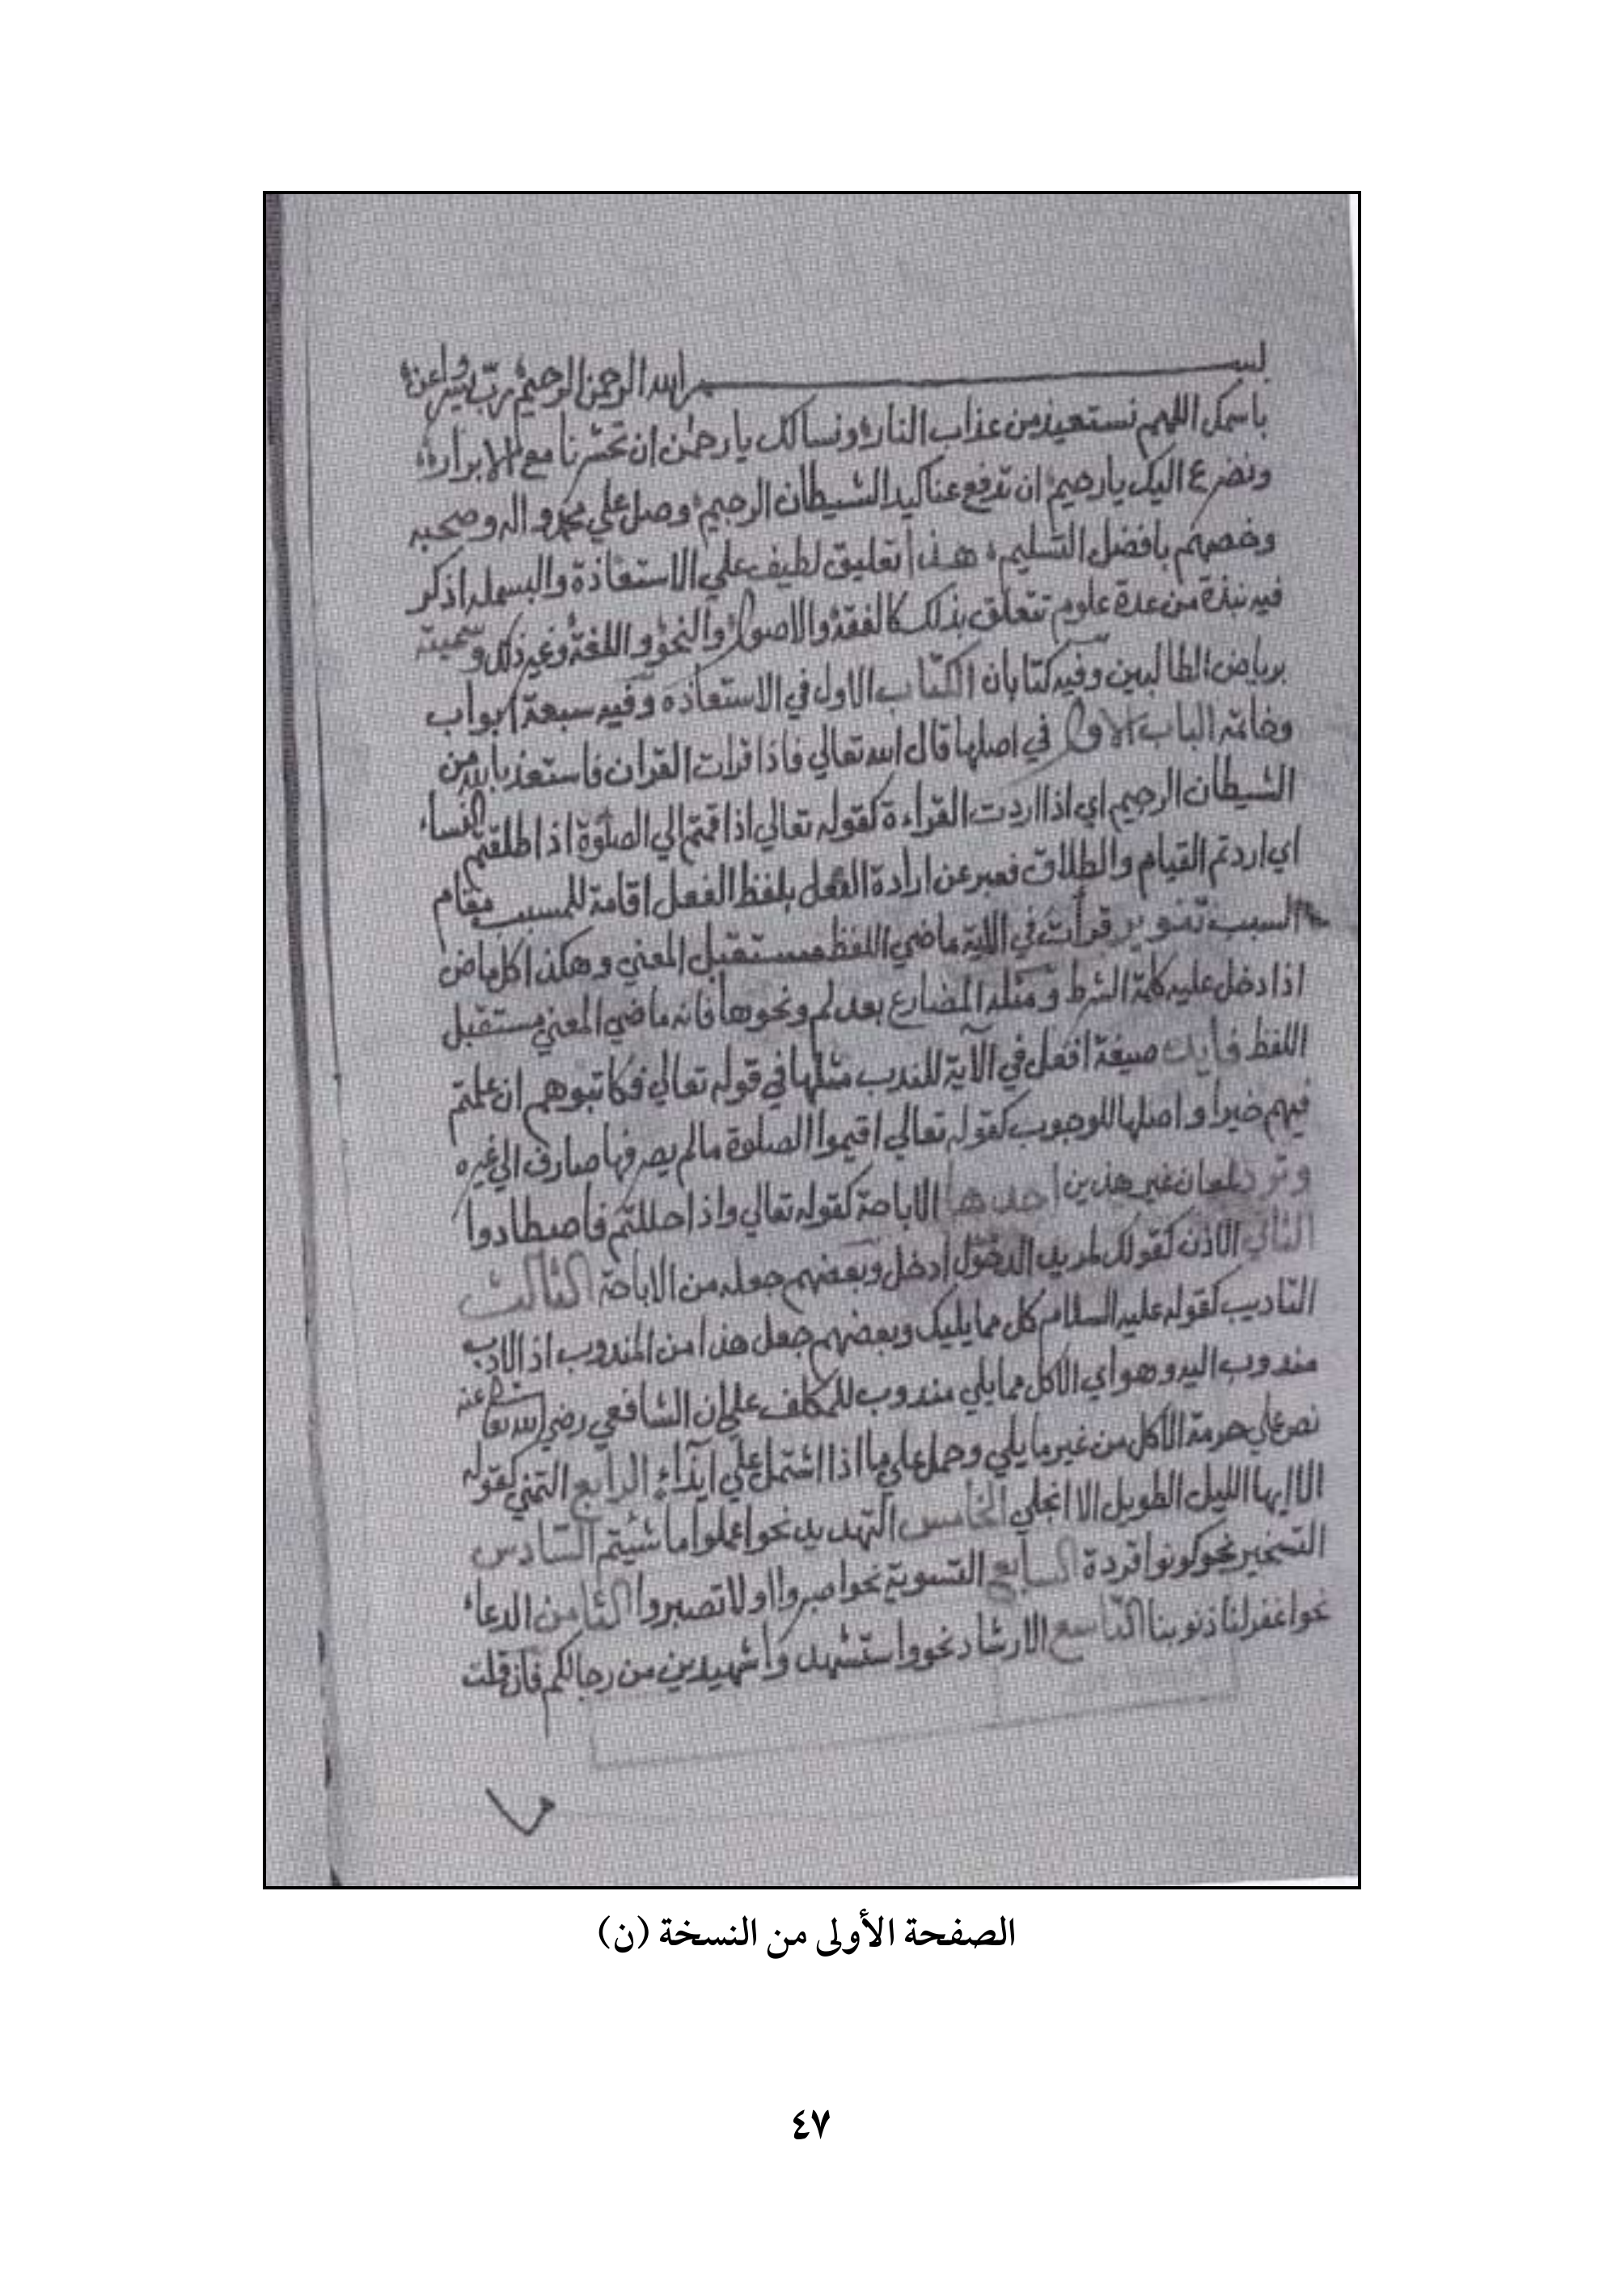 بسم الله الرحمن الرحيم رب يسر واعن
باسمك اللهم نستعيذ من عذاب النار ونسالك يا رحمن ان تحشرنا مع الابرار
ونضرع اليك يا رحيم ان تدفع عنا كيد الشيطان الرجيم وصل علي محمد واله وصحبه
وخصهم بافضل التسليم هذا تعليق لطيف علي الاستعاذة والبسملة اذكر
فيه نبذة من عدة علوم تتعلق بذلك كالفقه والاصول والنحو واللغة وغير ذلك وسميته
برياض الطالبين وفيه كتابان الكتاب الاول في الاستعاذه وفيه سبعة ابواب
وخاتمه الباب الاول في اصلها قال الله تعالي فاذا قرات القران فاستعذ بالله من
الشيطان الرجيم اي اذا اردت القراءة كقوله تعالي اذا قمتم الي الصلوة اذا طلقتم النساء
اي اردتم القيام والطلاق فعبر عن ارادة الفعل بلفظ الفعل اقامة للمسبب مقام
السبب تنوير قرأت في الاية ماضي اللفظ مستقبل المعني وهكذا كل ماض
اذا دخل عليه كلمة الشرط ومثله المضارع بعد لم ونحوها فانه ماضي المعني مستقبل
اللفظ فايدة صيغة افعل في الآية للندب مثلها في قوله تعالي فكاتبوهم ان علمتم
فيهم خيرا واصلها للوجوب كقوله تعالي اقيموا الصلوة مالم يصرفها صارف الي غيره
وترد لمعان غير هذين احدها الاباحة كقوله تعالي واذا حللتم فاصطادوا
الثاني الاذن كقولك لمريد الدخول ادخل وبعضهم جعله من الاباحة الثالث
التاديب كقوله عليه السلام كل مما يليك وبعضهم جعل هذا من المندوب اذ الادب
مندوب اليه وهو اي الاكل مما يلي مندوب للمكلف علي ان الشافعي رضي الله تعالى عنه
نص علي حرمة الاكل من غير ما يلي وحمل علي ما اذا اشتمل علي ايذاء الرابع التمني كقوله
الا ايها الليل الطويل الا انجلي الخامس التهديد نحو اعملوا ما شئتم السادس
التسخير نحو كونوا قردة السابع التسوية نحو اصبروا او لا تصبروا الثامن الدعاء
نحو اغفر لنا ذنوبنا التاسع الارشاد نحو واستشهدوا شهيدين من رجالكم فان قلت
الصفحة الأولى من النسخة (ن)
٤٧